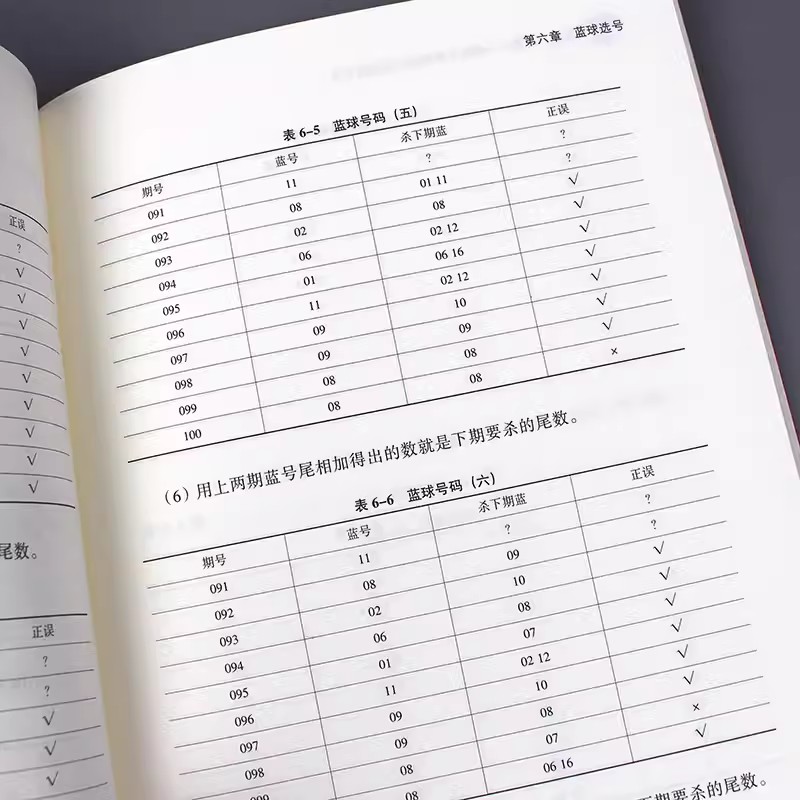 正误
?
√
√
√
√
√
√
√
√
√
尾数。
正误
?
?
√
√
√
第六章 蓝球选号
表 6-5 蓝球号码（五）
期号 蓝号 杀下期蓝 正误
091 11 ? ?
092 08 01 11 ?
093 02 08 √
094 06 02 12 √
095 01 06 16 √
096 11 02 12 √
097 09 10 √
098 09 09 √
099 08 08 √
100 08 08 ×
（6）用上两期蓝号尾相加得出的数就是下期要杀的尾数。
表 6-6 蓝球号码（六）
期号 蓝号 杀下期蓝 正误
091 11 ? ?
092 08 09 ?
093 02 10 √
094 06 08 √
095 01 07 √
096 11 02 12 √
097 09 10 √
098 09 08 √
099 08 07 ×
08 06 16 √
下期要杀的尾数。